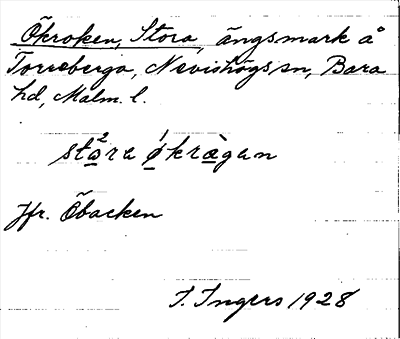 Ökroken, Stora, ängsmark å
Torreberga, Nevishögs sn, Bara
hd, Malm. l.
sto²ra ó̱krògan
Jfr. Öbacken
I. Ingers 1928